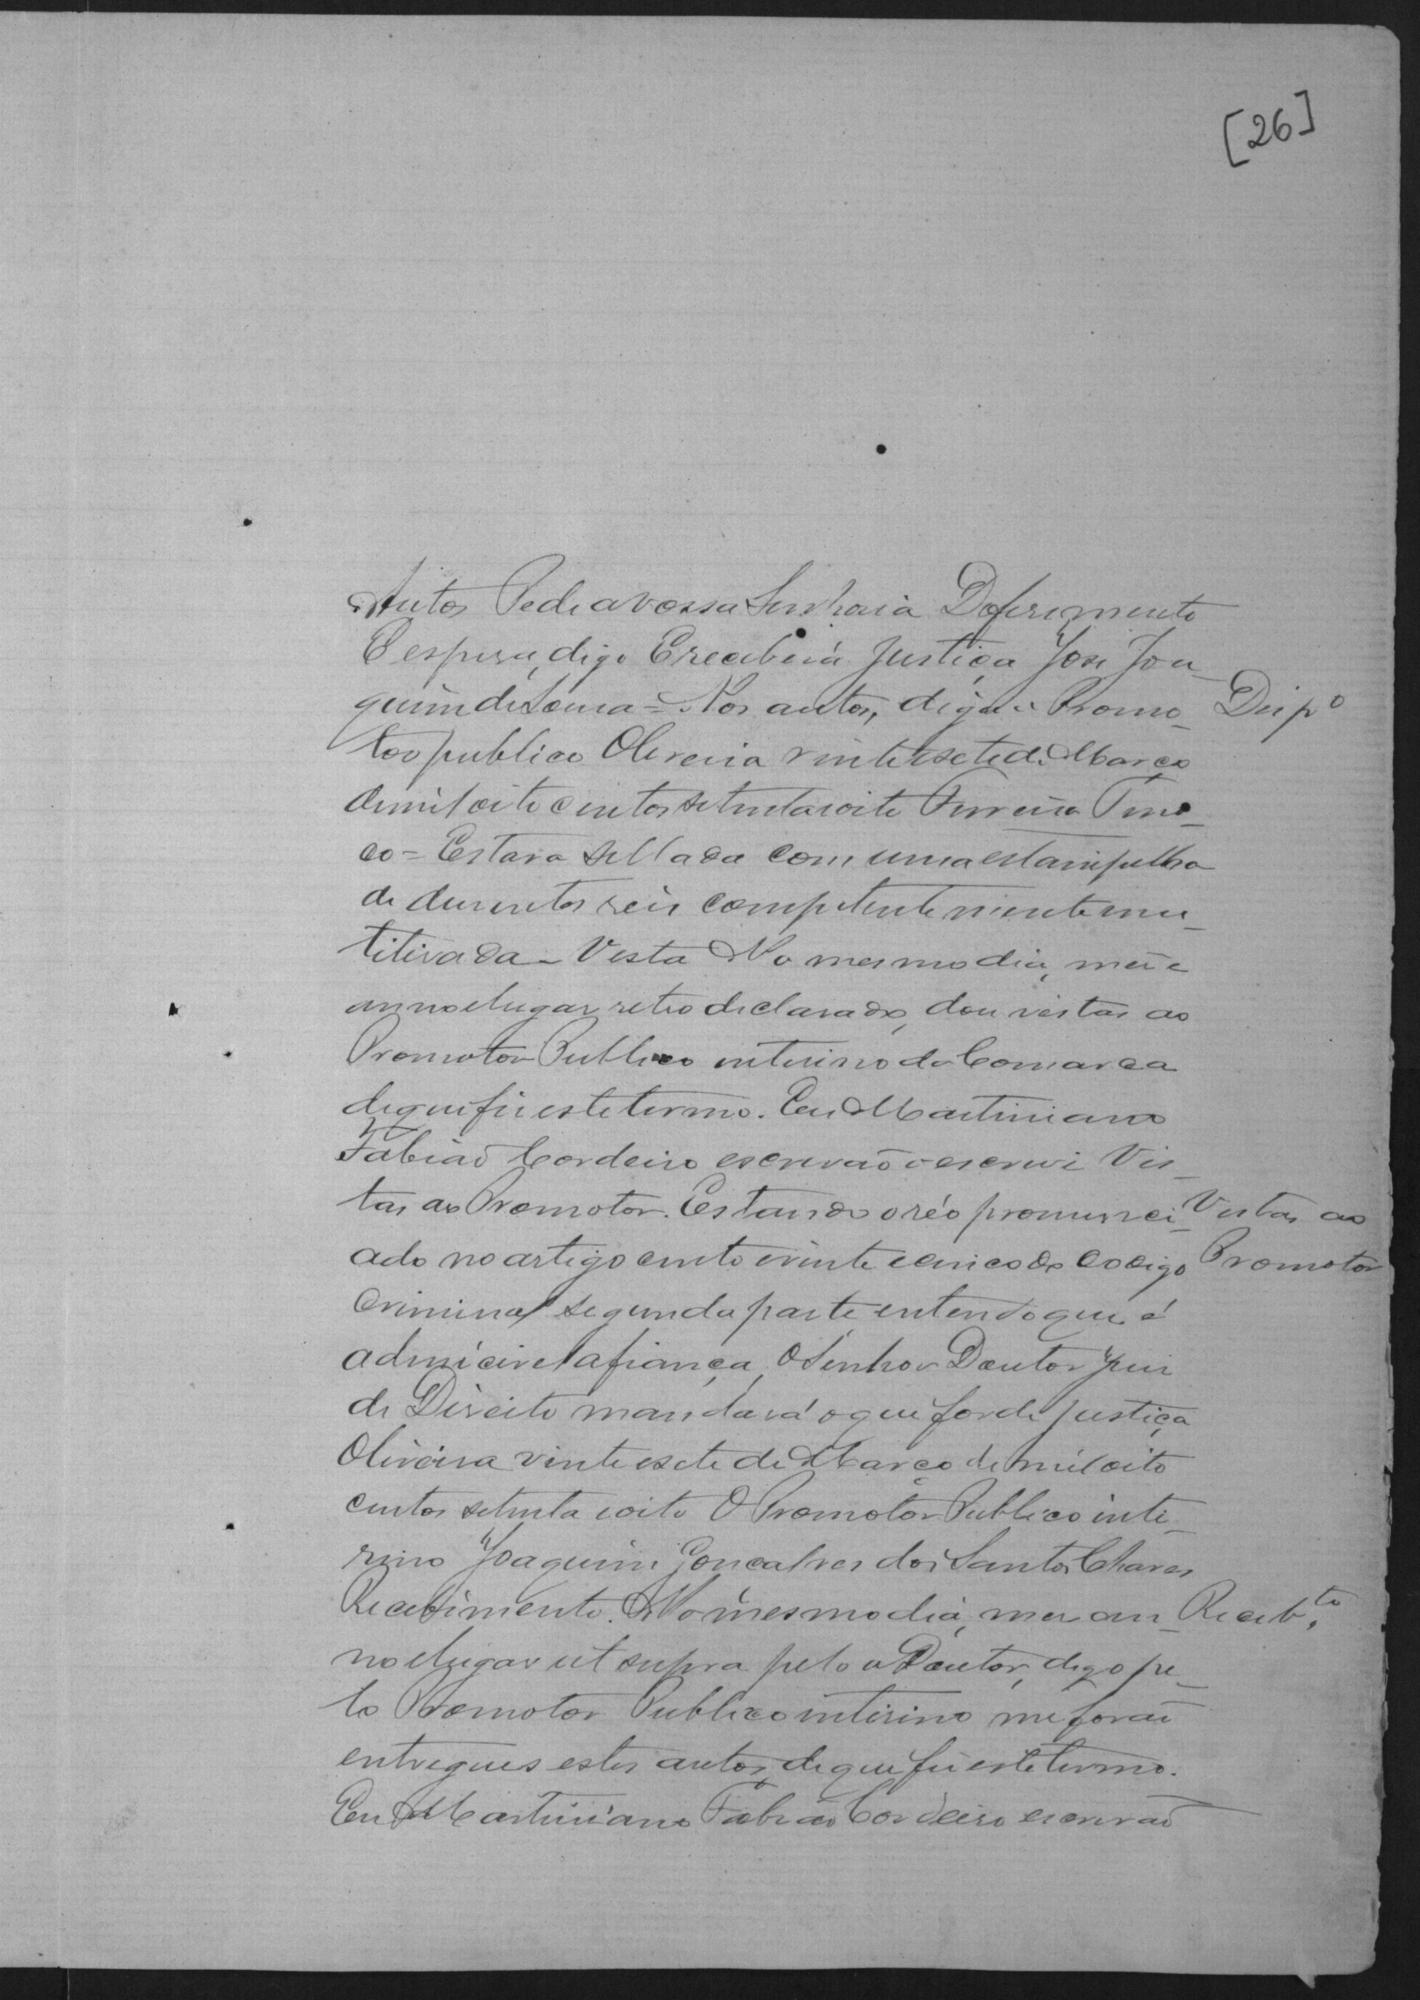 [26]
Autos Pede a vossa Senhoria Deferimento
E espera, digo E receberá justiça José Joa-
quim de Sousa = Nos autos, diga o Promo-
Desp.º
tor publico Oliveira vinte e sete de Março
de mil oito centos setenta e oito Ferreira Tino-
co = Estava sellada com uma estampilha
de duzentos reis competentemente inu-
tilisada - Vista No mesmo dia, mez e
anno e lugar retro declarado, dou vistas ao
Promotor Publico interino da Comarca
de que fiz este termo. Eu Martiniano
Fabião Cordeiro escrivão o escrevi Vis-
tas ao Promotor. Estando o réo pronunci-
Vistas ao
Promotor
ado no artigo cento e vinte e cinco do codigo
Criminal segunda parte entendo que é
admicivel a fiança, O Senhor Doutor Juiz
de Direito mandará o que for de justiça
Oliveira vinte e sete de Março de mil oito
centos setenta e oito O Promotor Publico inte-
rino Joaquim Gonçalves dos Santos Chaves
Recebimento. No mesmo dia, mez an-
Receb.to
no e lugar ut supra pelo o Doutor, digo pe-
lo Promotor Publico interino me forão
entregues estes autos, de que fiz este termo.
Eu Martiniano Fabião Cordeiro escrivão